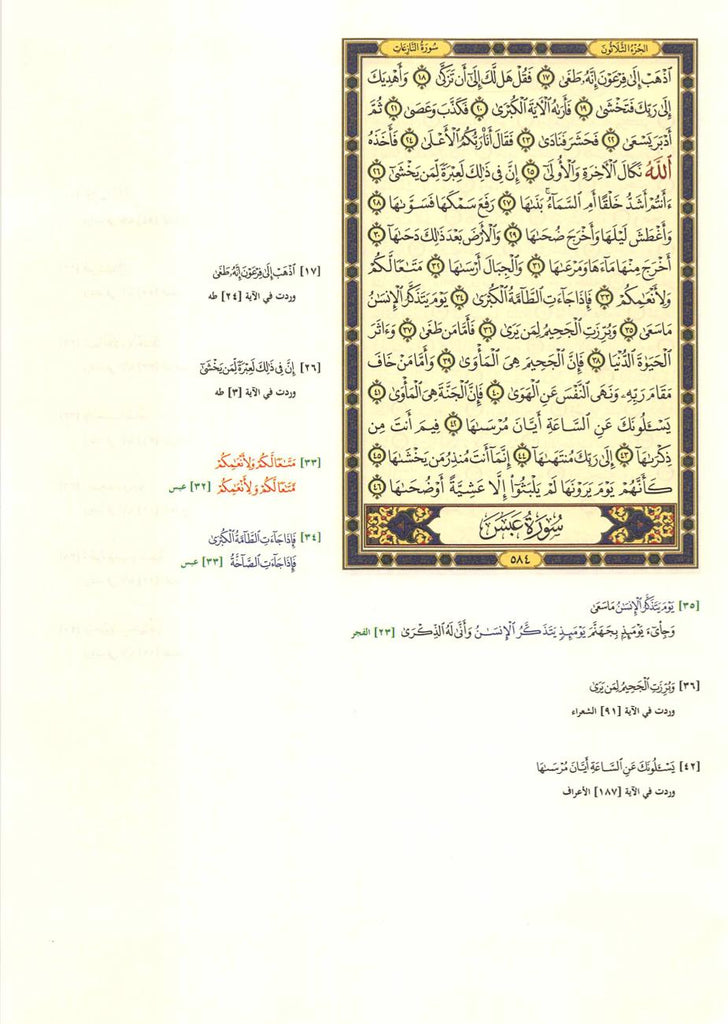 الجزء الثلاثون
سورة النازعات
ٱذۡهَبۡ إِلَىٰ فِرۡعَوۡنَ إِنَّهُۥ طَغَىٰ ١٧ فَقُلۡ هَل لَّكَ إِلَىٰٓ أَن تَزَكَّىٰ ١٨ وَأَهۡدِيَكَ
إِلَىٰ رَبِّكَ فَتَخۡشَىٰ ١٩ فَأَرَىٰهُ ٱلۡأٓيَةَ ٱلۡكُبۡرَىٰ ٢٠ فَكَذَّبَ وَعَصَىٰ ٢١ ثُمَّ
أَدۡبَرَ يَسۡعَىٰ ٢٢ فَحَشَرَ فَنَادَىٰ ٢٣ فَقَالَ أَنَا۠ رَبُّكُمُ ٱلۡأَعۡلَىٰ ٢٤ فَأَخَذَهُ
ٱللَّهُ نَكَالَ ٱلۡأٓخِرَةِ وَٱلۡأُولَىٰٓ ٢٥ إِنَّ فِي ذَٰلِكَ لَعِبۡرَةٗ لِّمَن يَخۡشَىٰٓ ٢٦
ءَأَنتُمۡ أَشَدُّ خَلۡقًا أَمِ ٱلسَّمَآءُۚ بَنَىٰهَا ٢٧ رَفَعَ سَمۡكَهَا فَسَوَّىٰهَا ٢٨
وَأَغۡطَشَ لَيۡلَهَا وَأَخۡرَجَ ضُحَىٰهَا ٢٩ وَٱلۡأَرۡضَ بَعۡدَ ذَٰلِكَ دَحَىٰهَآ ٣٠
أَخۡرَجَ مِنۡهَا مَآءَهَا وَمَرۡعَىٰهَا ٣١ وَٱلۡجِبَالَ أَرۡسَىٰهَا ٣٢ مَتَٰعٗا لَّكُمۡ
وَلِأَنۡعَٰمِكُمۡ ٣٣ فَإِذَا جَآءَتِ ٱلطَّآمَّةُ ٱلۡكُبۡرَىٰ ٣٤ يَوۡمَ يَتَذَكَّرُ ٱلۡإِنسَٰنُ
مَا سَعَىٰ ٣٥ وَبُرِّزَتِ ٱلۡجَحِيمُ لِمَن يَرَىٰ ٣٦ فَأَمَّا مَن طَغَىٰ ٣٧ وَءَاثَرَ
ٱلۡحَيَوٰةَ ٱلدُّنۡيَا ٣٨ فَإِنَّ ٱلۡجَحِيمَ هِيَ ٱلۡمَأۡوَىٰ ٣٩ وَأَمَّا مَنۡ خَافَ
مَقَامَ رَبِّهِۦ وَنَهَى ٱلنَّفۡسَ عَنِ ٱلۡهَوَىٰ ٤٠ فَإِنَّ ٱلۡجَنَّةَ هِيَ ٱلۡمَأۡوَىٰ ٤١
يَسۡـَٔلُونَكَ عَنِ ٱلسَّاعَةِ أَيَّانَ مُرۡسَىٰهَا ٤٢ فِيمَ أَنتَ مِن
ذِكۡرَىٰهَآ ٤٣ إِلَىٰ رَبِّكَ مُنتَهَىٰهَآ ٤٤ إِنَّمَآ أَنتَ مُنذِرُ مَن يَخۡشَىٰهَا ٤٥
كَأَنَّهُمۡ يَوۡمَ يَرَوۡنَهَا لَمۡ يَلۡبَثُوٓاْ إِلَّا عَشِيَّةً أَوۡ ضُحَىٰهَا ٤٦
سورة عبس
٥٨٤
[١٧] ٱذۡهَبۡ إِلَىٰ فِرۡعَوۡنَ إِنَّهُۥ طَغَىٰ
وردت في الآية [٢٤] طه
[٢٦] إِنَّ فِي ذَٰلِكَ لَعِبۡرَةٗ لِّمَن يَخۡشَىٰٓ
وردت في الآية [٣] طه
[٣٣] مَتَٰعٗا لَّكُمۡ وَلِأَنۡعَٰمِكُمۡ
مَّتَٰعٗا لَّكُمۡ وَلِأَنۡعَٰمِكُمۡ [٣٢] عبس
[٣٤] فَإِذَا جَآءَتِ ٱلطَّآمَّةُ ٱلۡكُبۡرَىٰ
فَإِذَا جَآءَتِ ٱلصَّآخَّةُ [٣٣] عبس
[٣٥] يَوۡمَ يَتَذَكَّرُ ٱلۡإِنسَٰنُ مَا سَعَىٰ
وَجِاْيٓءَ يَوۡمَئِذِۭ بِجَهَنَّمَۚ يَوۡمَئِذٖ يَتَذَكَّرُ ٱلۡإِنسَٰنُ وَأَنَّىٰ لَهُ ٱلذِّكۡرَىٰ [٢٣] الفجر
[٣٦] وَبُرِّزَتِ ٱلۡجَحِيمُ لِمَن يَرَىٰ
وردت في الآية [٩١] الشعراء
[٤٢] يَسۡـَٔلُونَكَ عَنِ ٱلسَّاعَةِ أَيَّانَ مُرۡسَىٰهَا
وردت في الآية [١٨٧] الأعراف